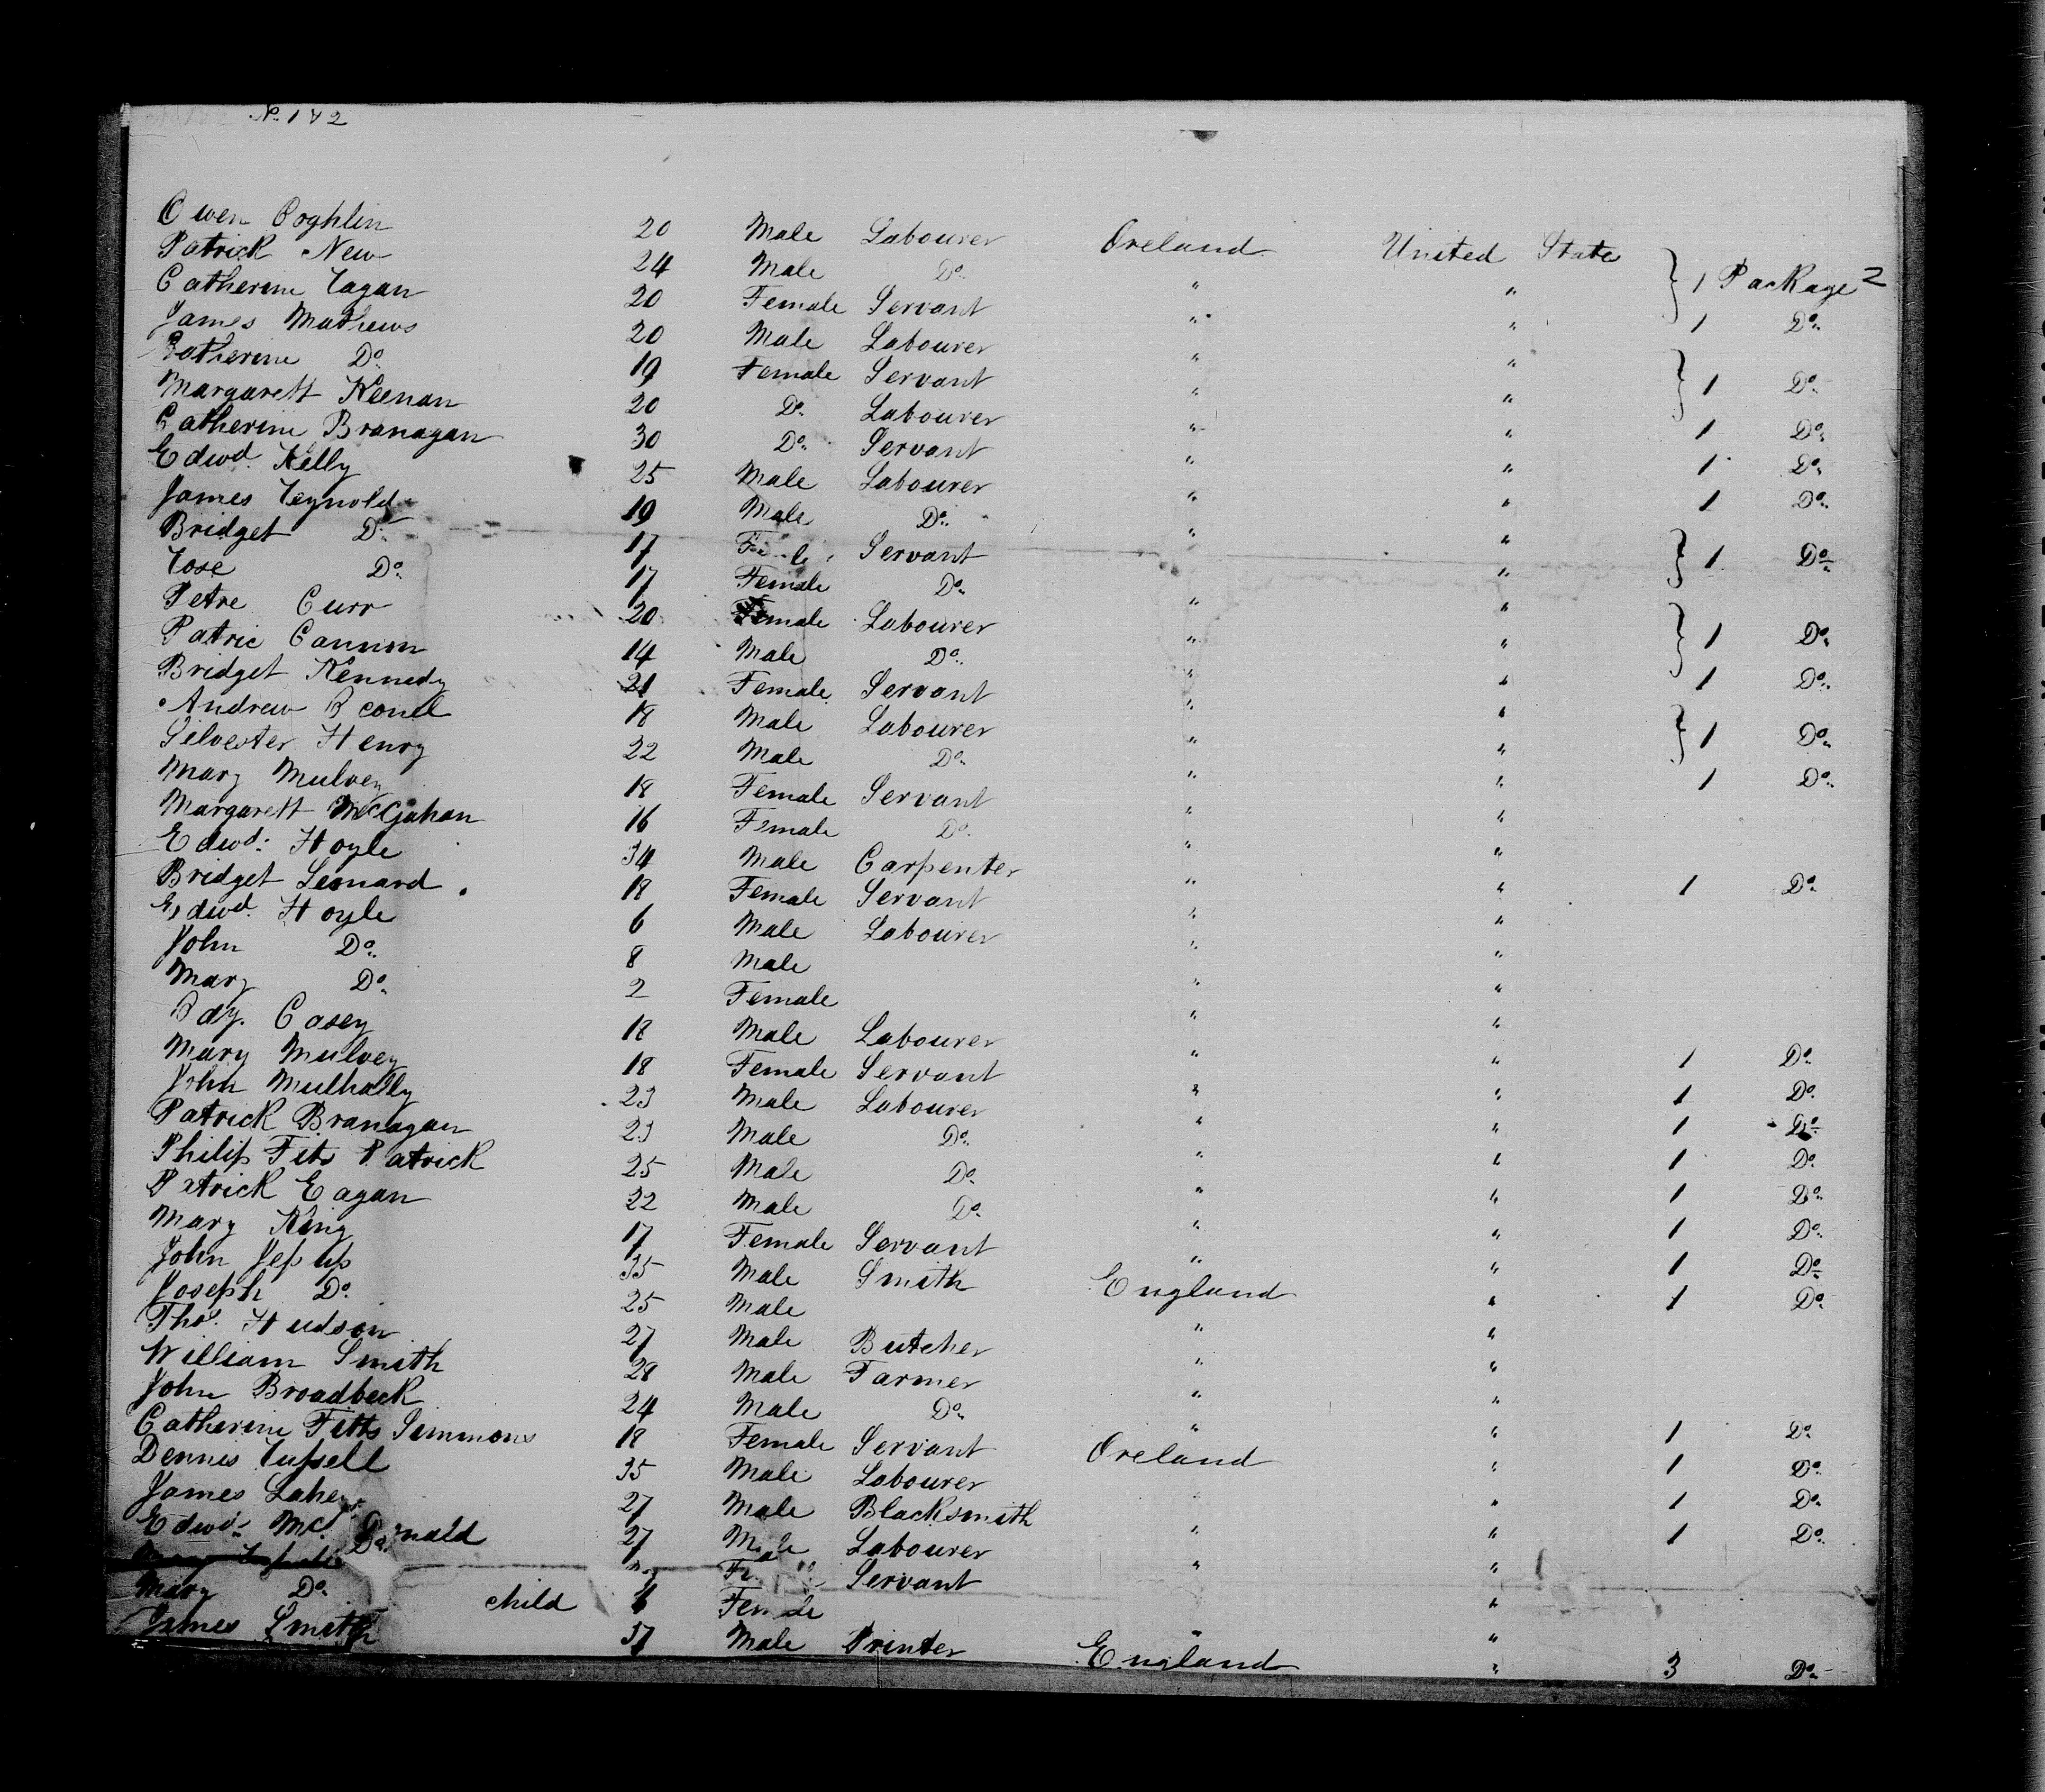 No. 142
Owen Coghlin 20 Male Labourer Ireland United State
Patrick New 24 Male Do. " " } 1 Package
Catherine Fagan 20 Female Servant " " 1 Do.
James Mathews 20 Male Labourer " "
Catherine Do. 19 Female Servant " " } 1 Do.
Margarett Keenan 20 Do. Labourer " " 1 Do.
Catherine Branagan 30 Do. Servant " " 1 Do.
Edwd. Kelly 25 Male Labourer " " 1 Do.
James Reynolds 19 Male Do. " "
Bridget Do. 17 Female Servant " " } 1 Do.
Rose Do. 17 Female Do. " "
Petre Curr 20 Female Labourer " " } 1 Do.
Patric Cannon 14 Male Do. " " 1 Do.
Bridget Kennedy 21 Female Servant " "
Andrew 18 Male Labourer " " } 1 Do.
Silvester Henry 22 Male Do. " " 1 Do.
Mary Mulvey 18 Female Servant " "
Margarett McGahan 16 Female Do. " "
Edwd. Hoyle 34 Male Carpenter " " 1 Do.
Bridget Leonard 18 Female Servant " "
Edwd. Hoyle 6 Male Labourer " "
John Do. 8 Male " "
Mary Do. 2 Female " "
Casey 18 Male Labourer " " 1 Do.
Mary Mulvey 18 Female Servant " " 1 Do.
John Mulhally 23 Male Labourer " " 1 Do.
Patrick Branagan 23 Male Do. " " 1 Do.
Philip Fits Patrick 25 Male Do. " " 1 Do.
Patrick Eagan 22 Male Do. " " 1 Do.
Mary King 17 Female Servant " " 1 Do.
John Jessup 35 Male Smith England " 1 Do.
Joseph Do. 25 Male " "
Thos. Hudson 27 Male Butcher " "
William Smith 28 Male Farmer " "
John Broadbeck 24 Male Do. " " 1 Do.
Catherine Fitts Simmons 18 Female Servant Ireland " 1 Do.
Dennis Russell 35 Male Labourer " " 1 Do.
James Lahey 27 Male Blacksmith " " 1 Do.
Edwd. McDonald 27 Male Labourer " "
Do. Servant "
Mary Do. child Female " "
James Smith 37 Male Printer England " 3 Do.